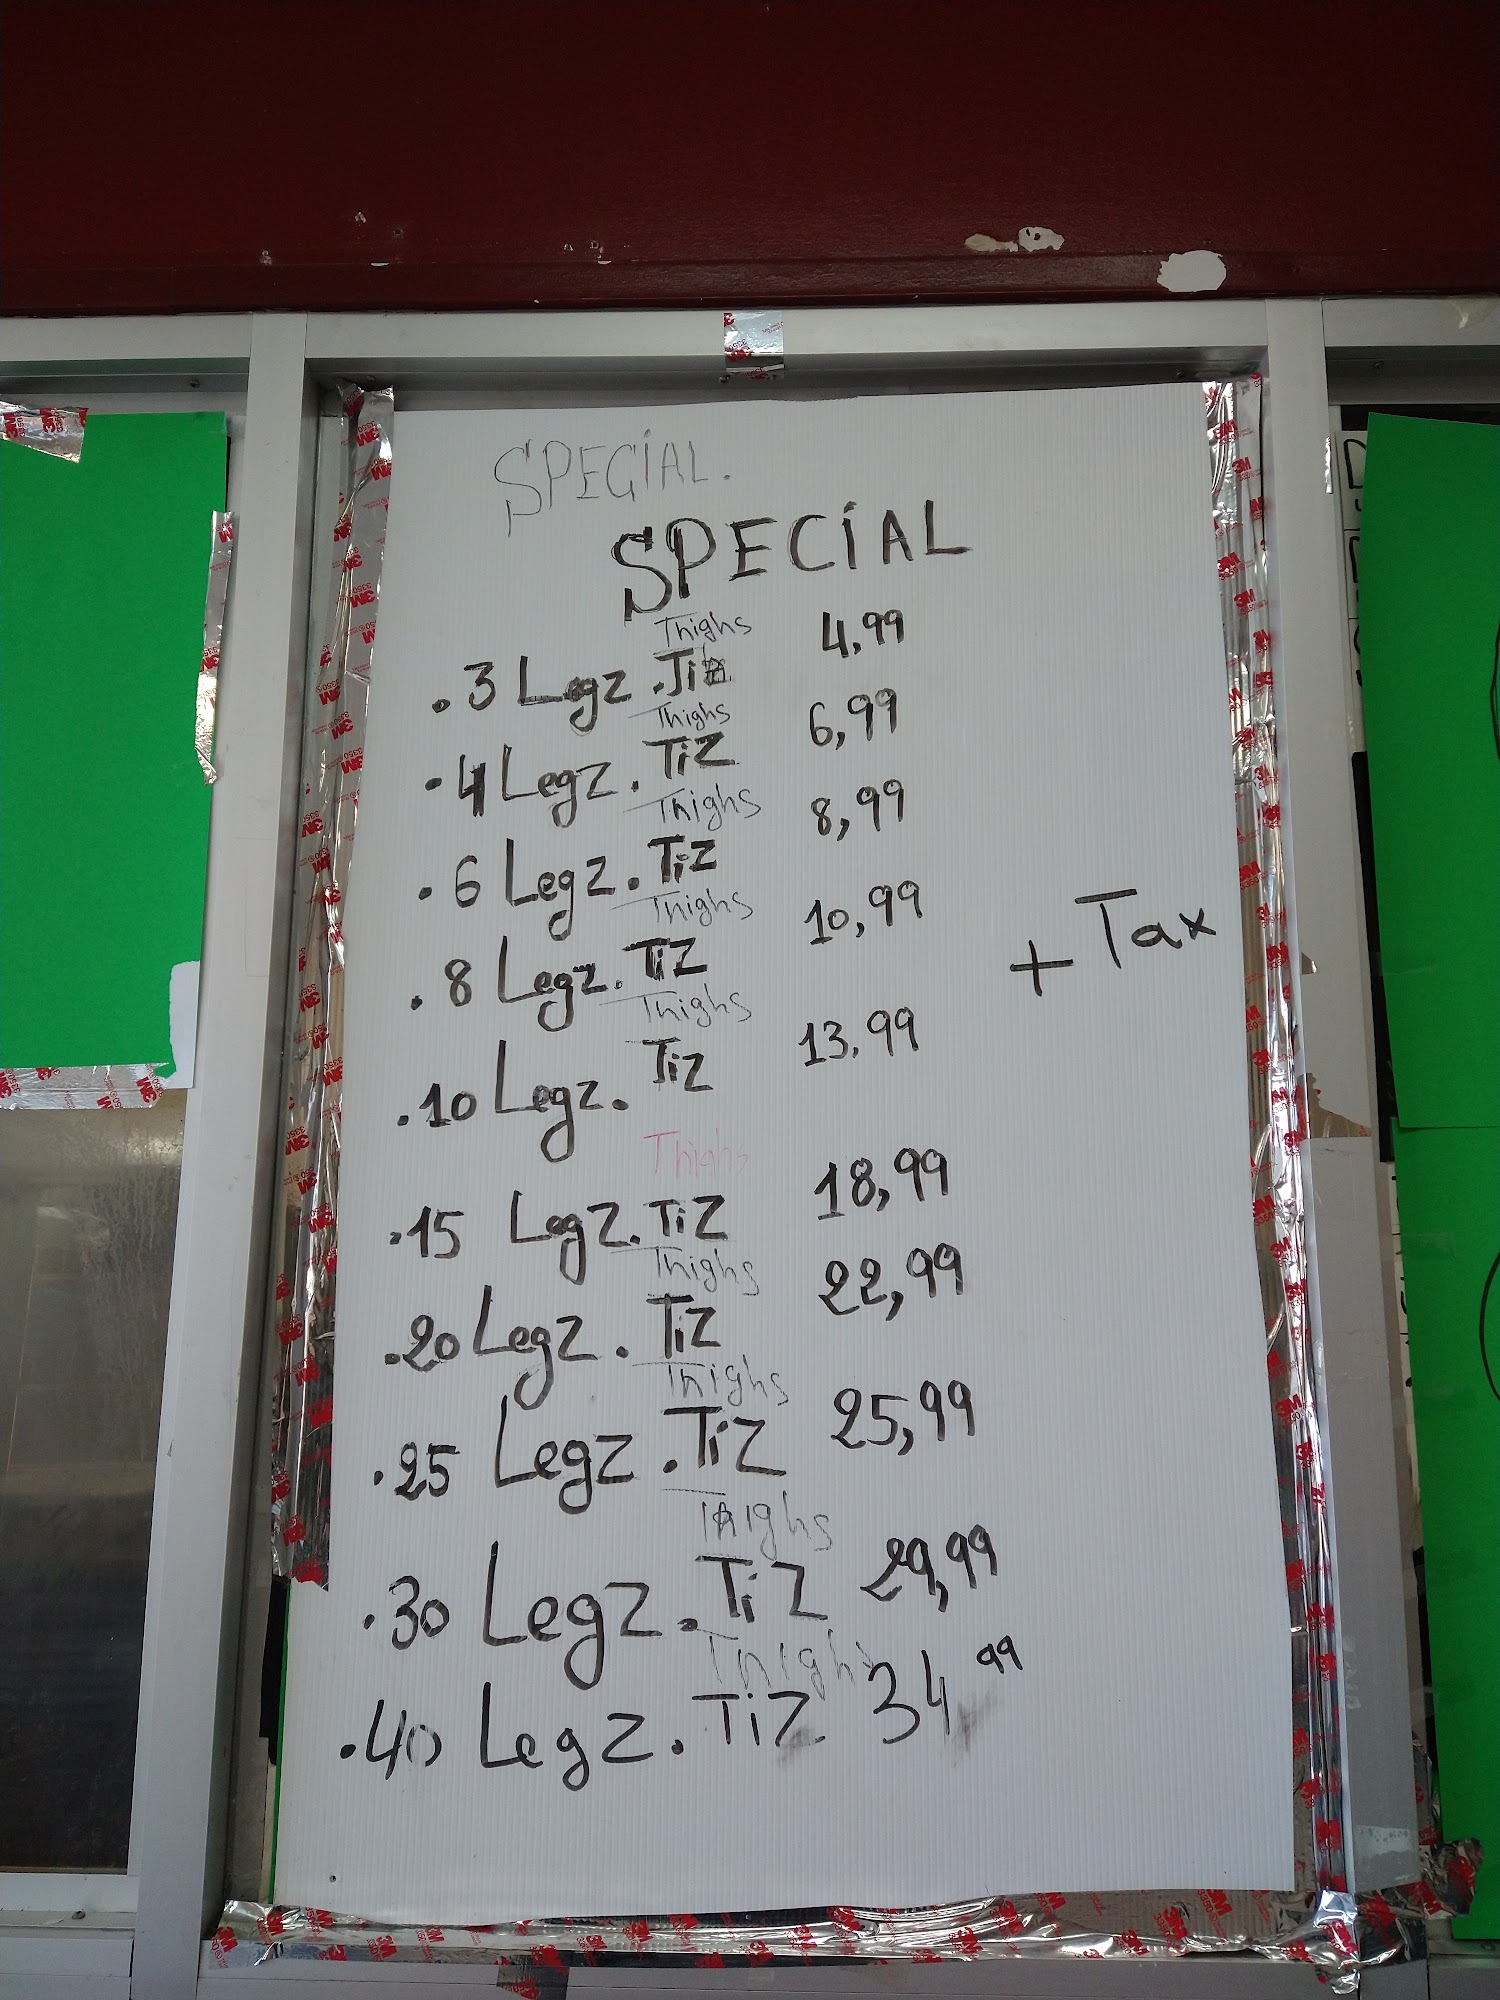 SPECIAL.
SPECIAL
Thighs
.3 Legz .Tiz 4,99
Thighs
.4 Legz. Tiz 6,99
Thighs
.6 Legz. Tiz 8,99
Thighs
.8 Legz. Tiz 10,99
Thighs
.10 Legz. Tiz 13,99
+ Tax
Thighs
.15 Legz. Tiz 18,99
Thighs
.20 Legz. Tiz 22,99
Thighs
.25 Legz .Tiz 25,99
Thighs
.30 Legz .Tiz 29,99
Thighs
.40 Legz. Tiz 34 99
3M
3350